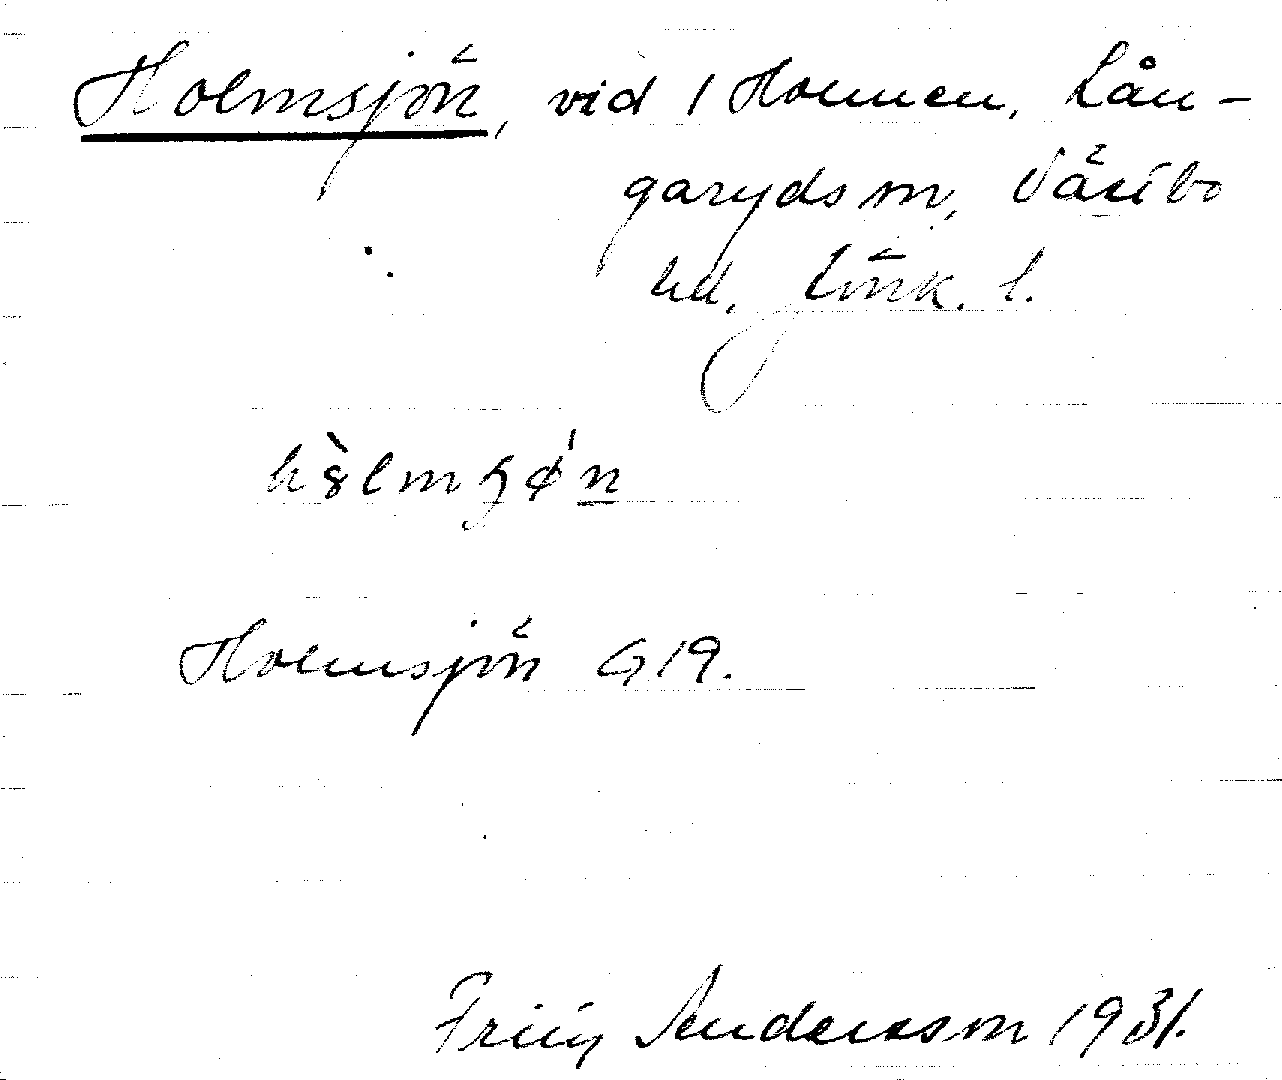 Holmsjön, vid 1 Holmen, Lån-
garyds sn, Västbo
hd, Jönk. l.
Holmsjön G19.
Andersson 1931.